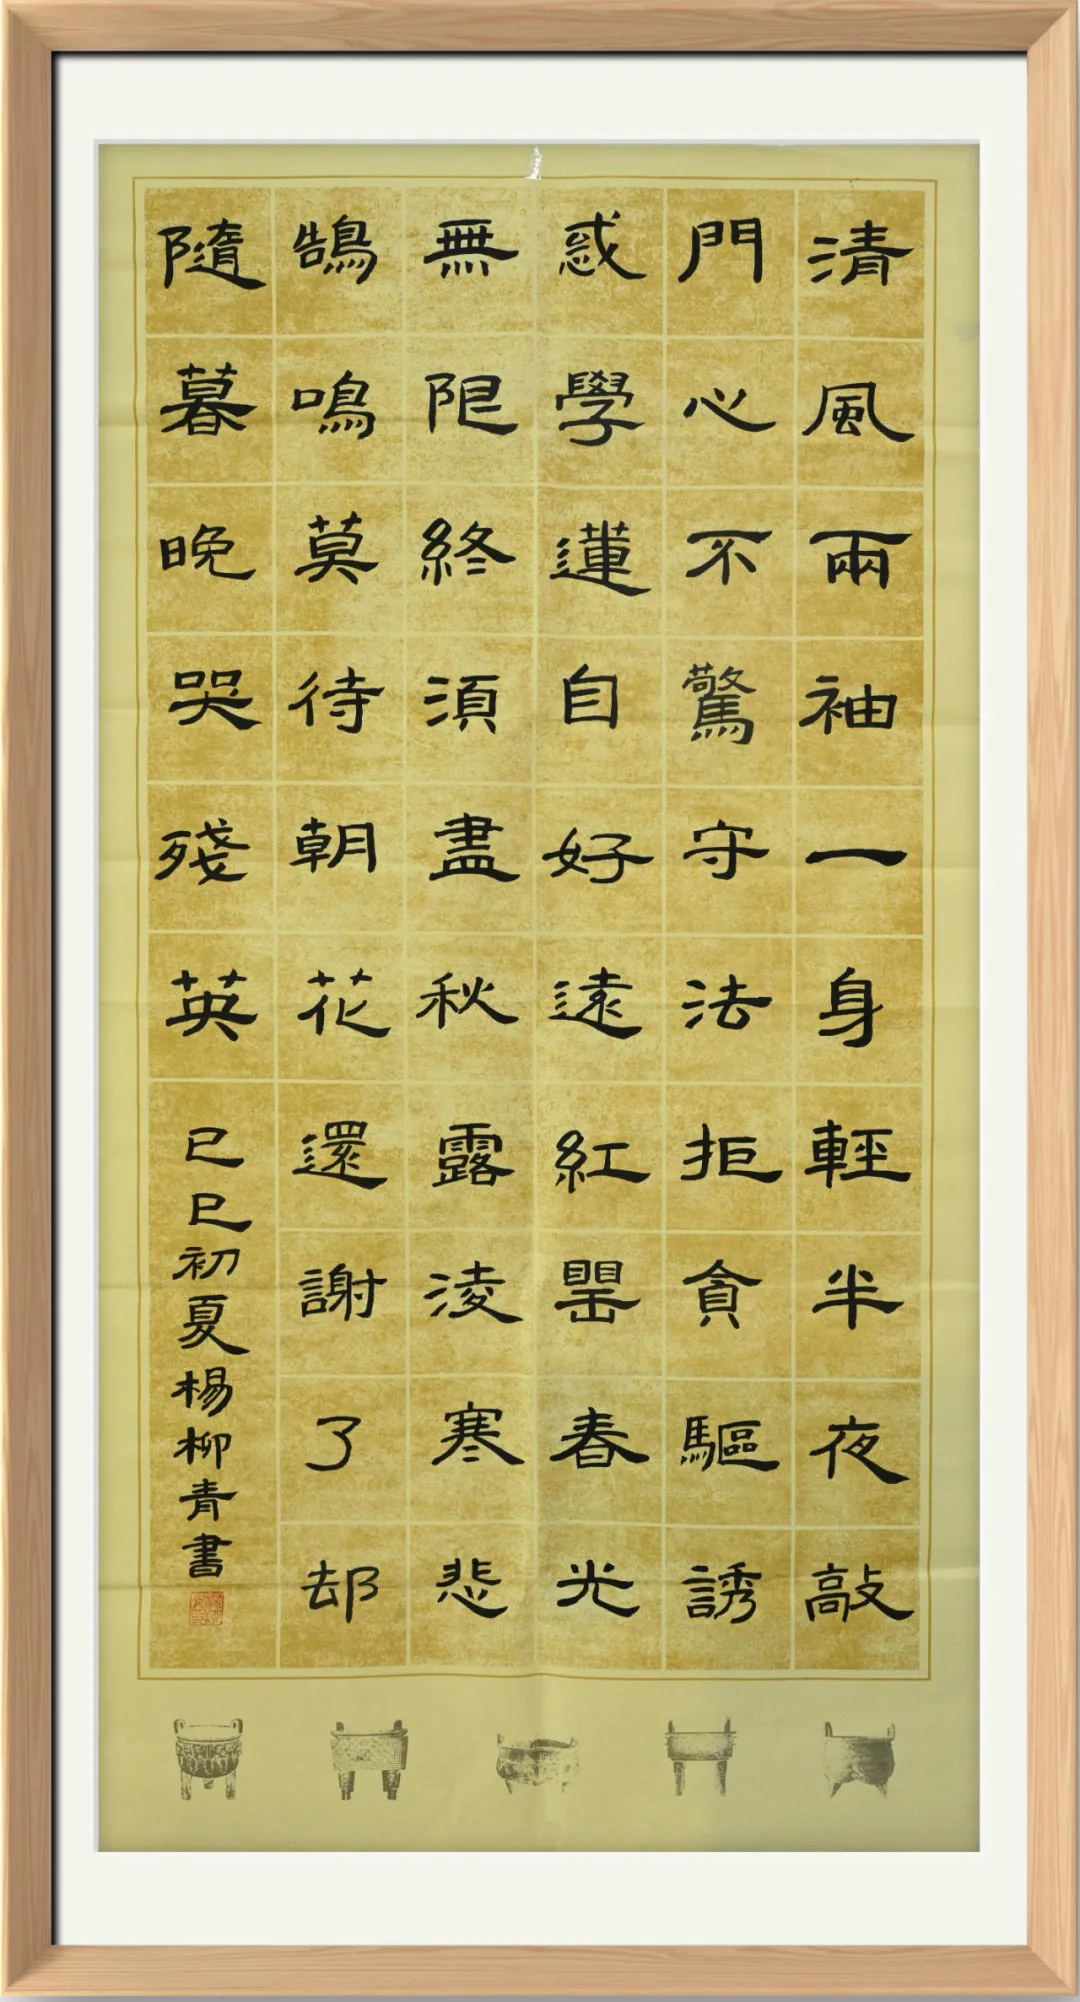 清風兩袖一身輕半夜敲
門心不驚守法拒貪驅誘
惑學蓮自好遠紅罌春光
無限終須盡秋露淩寒悲
鵠鳴莫待朝花還謝了却
隨暮晚哭殘英
己巳初夏楊柳青書